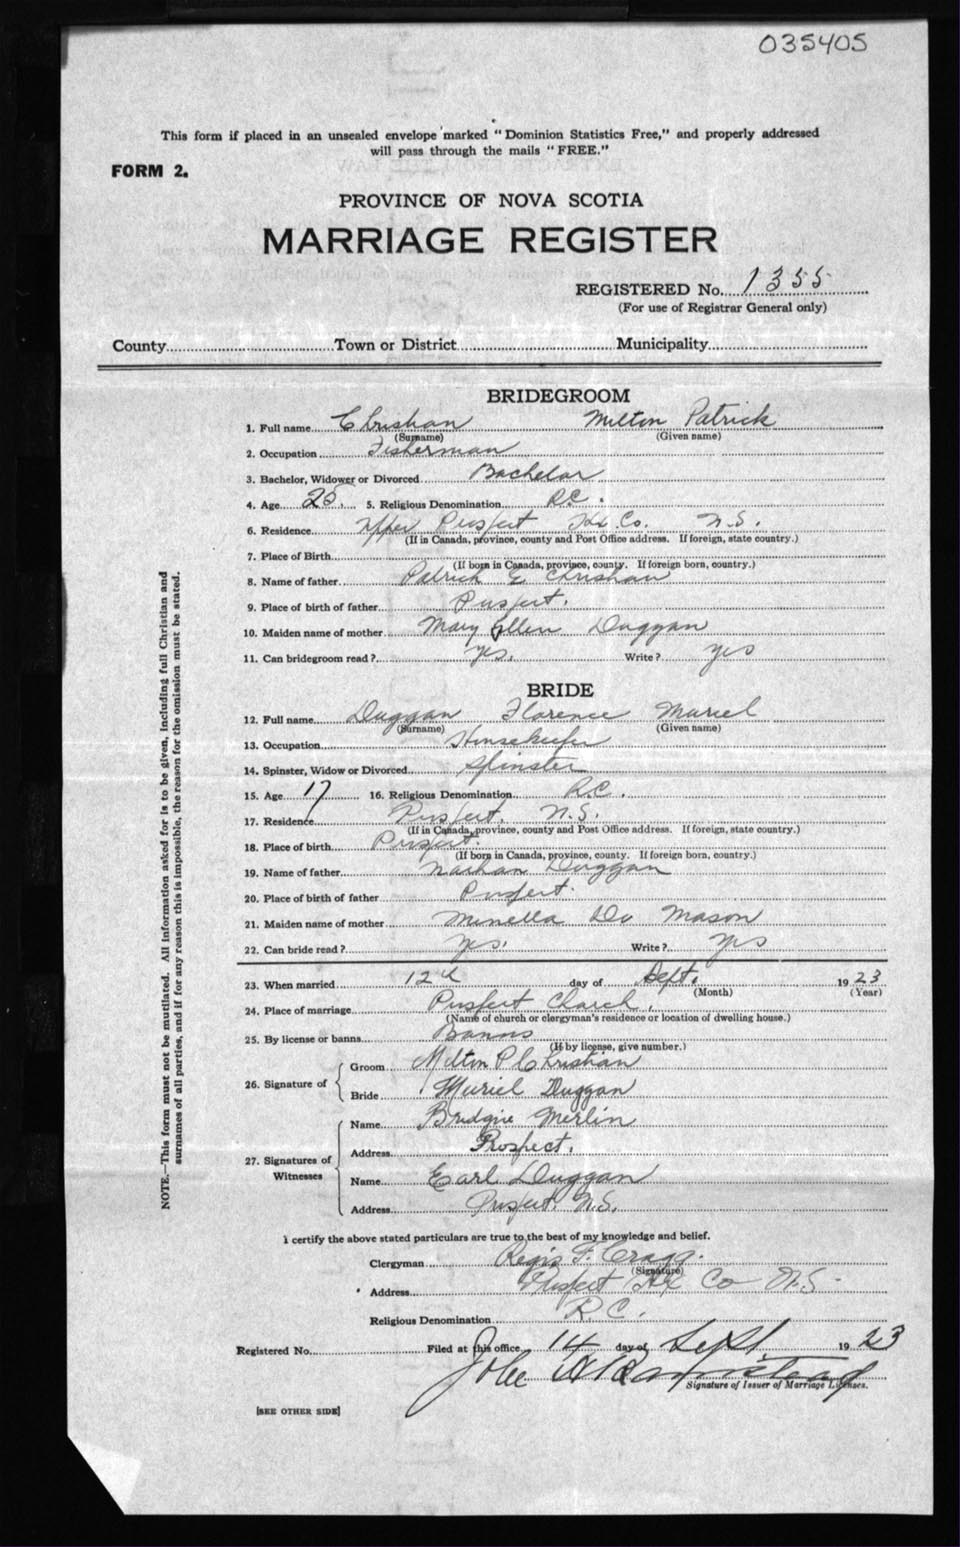 035405
This form if placed in an unsealed envelope marked "Dominion Statistics Free," and properly addressed
will pass through the mails "FREE."
FORM 2.
PROVINCE OF NOVA SCOTIA
MARRIAGE REGISTER
REGISTERED No. 1355
(For use of Registrar General only)
County Town or District Municipality
BRIDEGROOM
1. Full name Chrishan Milton Patrick
(Surname) (Given name)
2. Occupation Fisherman
3. Bachelor, Widower or Divorced Bachelor
4. Age 25 5. Religious Denomination R.C.
6. Residence Upper Prospect Hx Co. N.S.
(If in Canada, province, county and Post Office address. If foreign, state country.)
7. Place of Birth
(If born in Canada, province, county. If foreign born, country.)
8. Name of father Patrick E Chrishan
9. Place of birth of father Prospect.
10. Maiden name of mother Mary Ellen Duggan
11. Can bridegroom read? Yes. Write? Yes
BRIDE
12. Full name Duggan Florence Muriel
(Surname) (Given name)
13. Occupation Housekeeper
14. Spinster, Widow or Divorced Spinster
15. Age 17 16. Religious Denomination R.C.
17. Residence Prospect. N.S.
(If in Canada, province, county and Post Office address. If foreign, state country.)
18. Place of birth Prospect.
(If born in Canada, province, county. If foreign born, country.)
19. Name of father Nathan Duggan
20. Place of birth of father Prospect.
21. Maiden name of mother Minella Mason
22. Can bride read? Yes. Write? Yes
23. When married 12th day of Sept. 1923
(Month) (Year)
24. Place of marriage Prospect Church.
(Name of church or clergyman's residence or location of dwelling house.)
25. By license or banns Banns
(If by license, give number.)
26. Signature of
Groom Milton P Chrishan
Bride Muriel Duggan
27. Signatures of Witnesses
Name Bridgie Merlin
Address Prospect.
Name Earl Duggan
Address Prospect. N.S.
I certify the above stated particulars are true to the best of my knowledge and belief.
Clergyman Regis F. Cragg.
(Signature)
Address Prospect Hx Co N.S.
Religious Denomination R.C.
Registered No. Filed at this office 14 day of Sept. 1923
Signature of Issuer of Marriage Licenses.
[SEE OTHER SIDE]
NOTE.—This form must not be mutilated. All information asked for is to be given, including full Christian and
surnames of all parties, and if for any reason this is impossible, the reason for the omission must be stated.